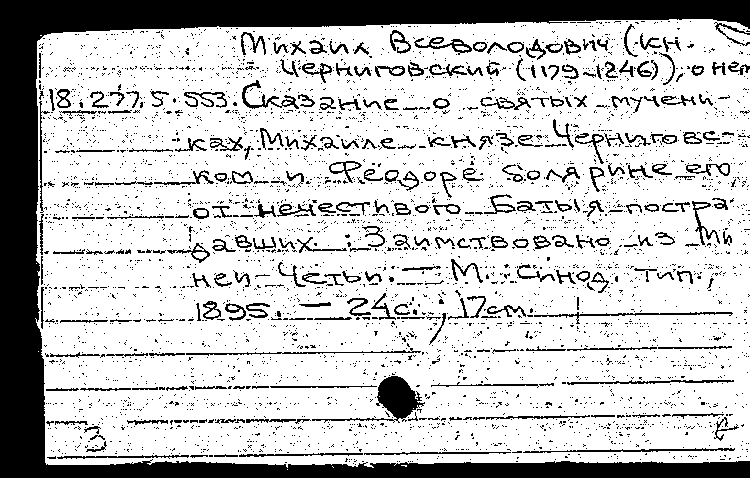 Михаил Всеволодович (кн.
Черниговский (1179-1246)), о нем
18.277.5.553. Сказание о святых мучени-
ках, Михаиле князе Черниговс-
ком и Феодоре болярине его,
от нечестивого Батыя постра
давших. : Заимствовано из Ми
неи-Четьи. — М. : синод. тип.,
1895. — 24с. ; 17см.
З